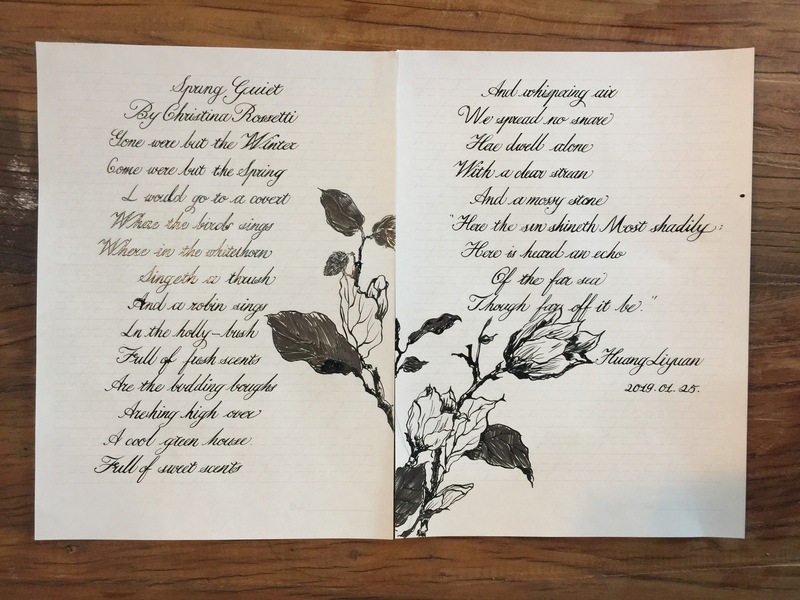 Spring Quiet
By Christina Rossetti
Gone were but the Winter
Come were but the Spring
I would go to a covert
Where the birds sings
Where in the whitethorn
Singeth a thrush
And a robin sings
In the holly-bush
Full of fresh scents
Are the budding boughs
Arching high over
A cool green house
Full of sweet scents
And whispering air
We spread no snare
Hae dwell alone
With a clear stream
And a mossy stone
"Here the sun shineth Most shadily:
Here is heard an echo
Of the far sea
Though far off it be."
Huang Liyuan
2019.01.25.